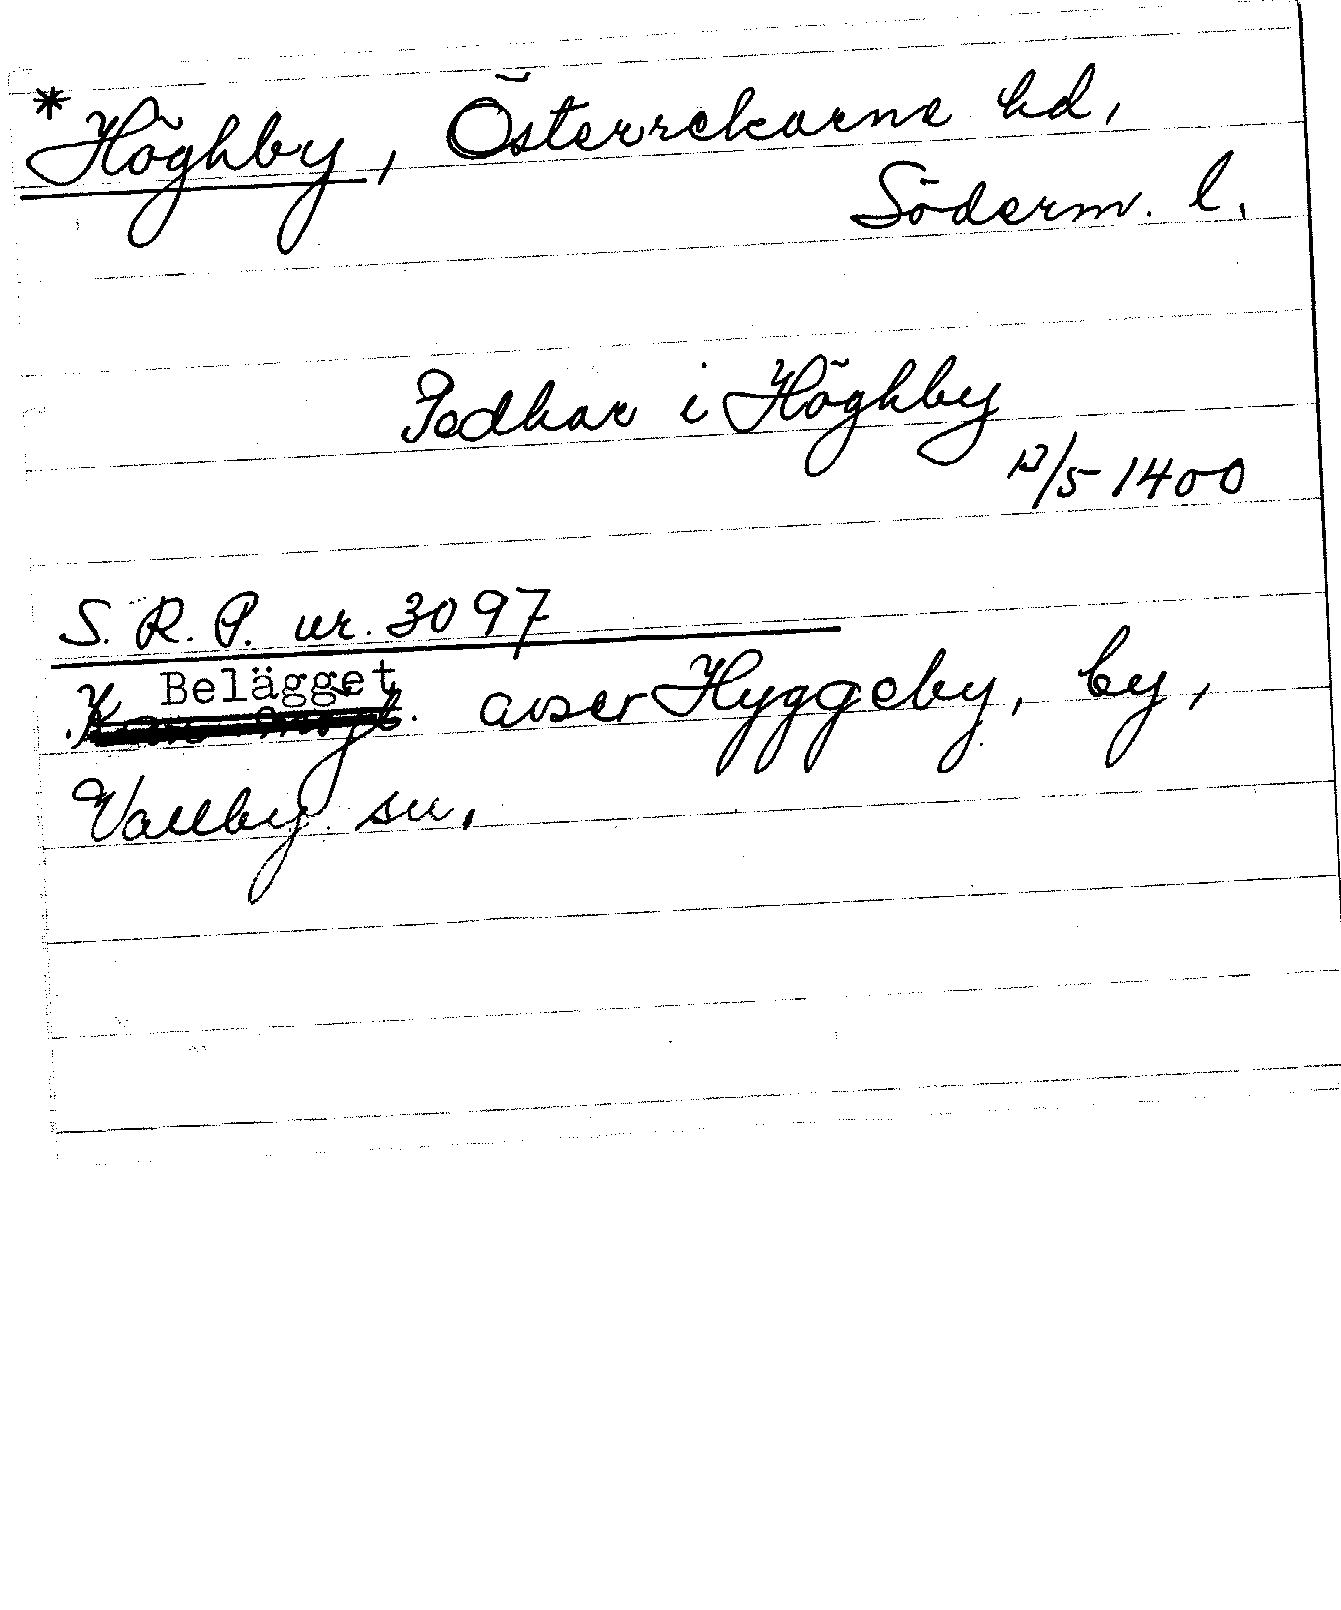 *Höghby, Österrekarne hd,
Söderm. l.
Pedhar i Höghby
12/5 1400
S. R. P. nr. 3097
Belägget avser Hyggeby, by,
Vallby sn.